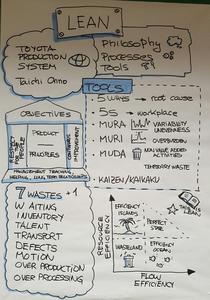 LEAN
TOYOTA
PRODUCTION
SYSTEM
Taichi Onno
Philosophy
Processes
Tools
TOOLS
5 WHYS → root cause
5S → workplace
MURA → VARIABILITY
UNEVENNESS
MURI → OVERBURDEN
MUDA → NON VALUE ADDED
ACTIVITIES
TEMPORARY WASTE
KAIZEN/KAIKAKU
OBJECTIVES
RESPECT
FOR
PEOPLE
PRODUCT
PRINCIPLES
CONTINUOUS
IMPROVEMENT
MANAGEMENT TEACHING,
HELPING, LONG TERM RELATIONSHIPS
7 WASTES +1
WAITING
INVENTORY
TALENT
TRANSPORT
DEFECTS
MOTION
OVER PRODUCTION
OVER PROCESSING
RESOURCE
EFFICIENCY
EFFICIENCY
ISLANDS
PERFECT
STATE
LEAN
WASTELAND
EFFICIENCY
OCEAN
FLOW
EFFICIENCY